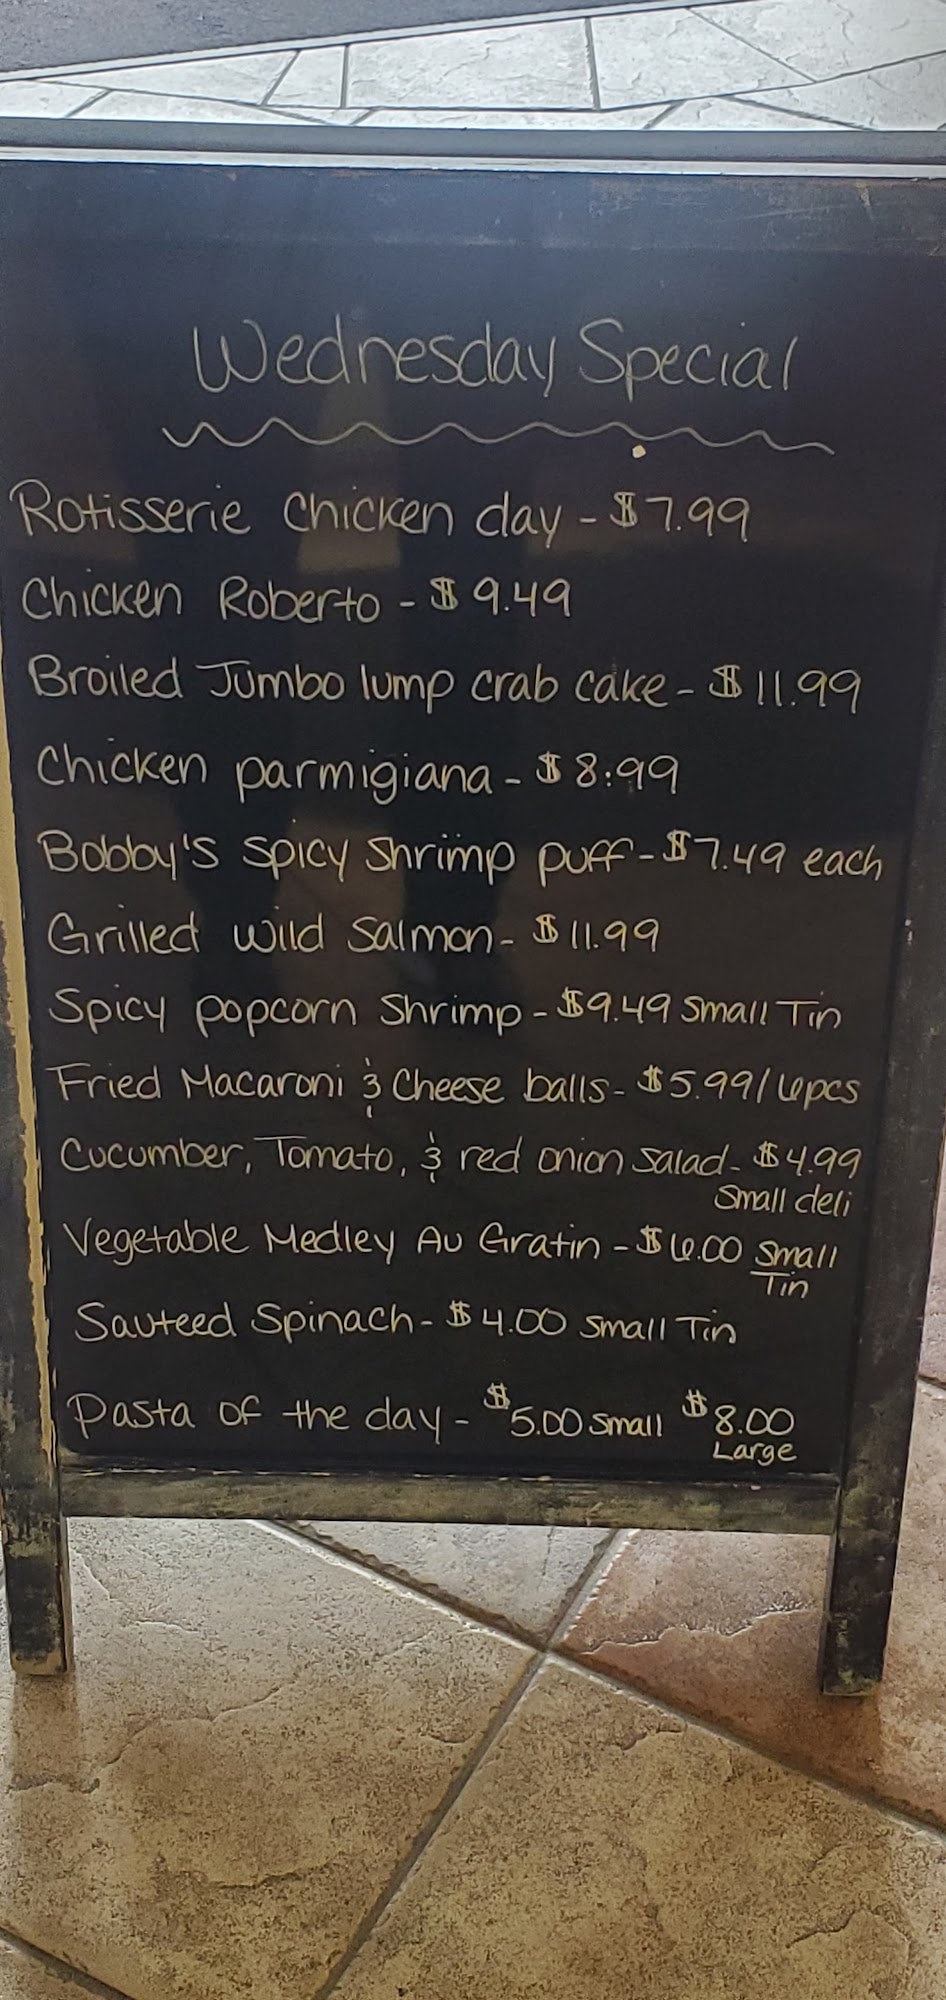 Wednesday Special
Rotisserie Chicken day - $7.99
Chicken Roberto - $9.49
Broiled Jumbo lump crab cake - $11.99
Chicken parmigiana - $8.99
Bobby's Spicy Shrimp puff - $7.49 each
Grilled Wild Salmon - $11.99
Spicy popcorn Shrimp - $9.49 Small Tin
Fried Macaroni & Cheese balls - $5.99/6pcs
Cucumber, Tomato, & red onion Salad - $4.99
Small deli
Vegetable Medley Au Gratin - $6.00 Small
Tin
Sauteed Spinach - $4.00 Small Tin
Pasta of the day - $5.00 Small $8.00
Large